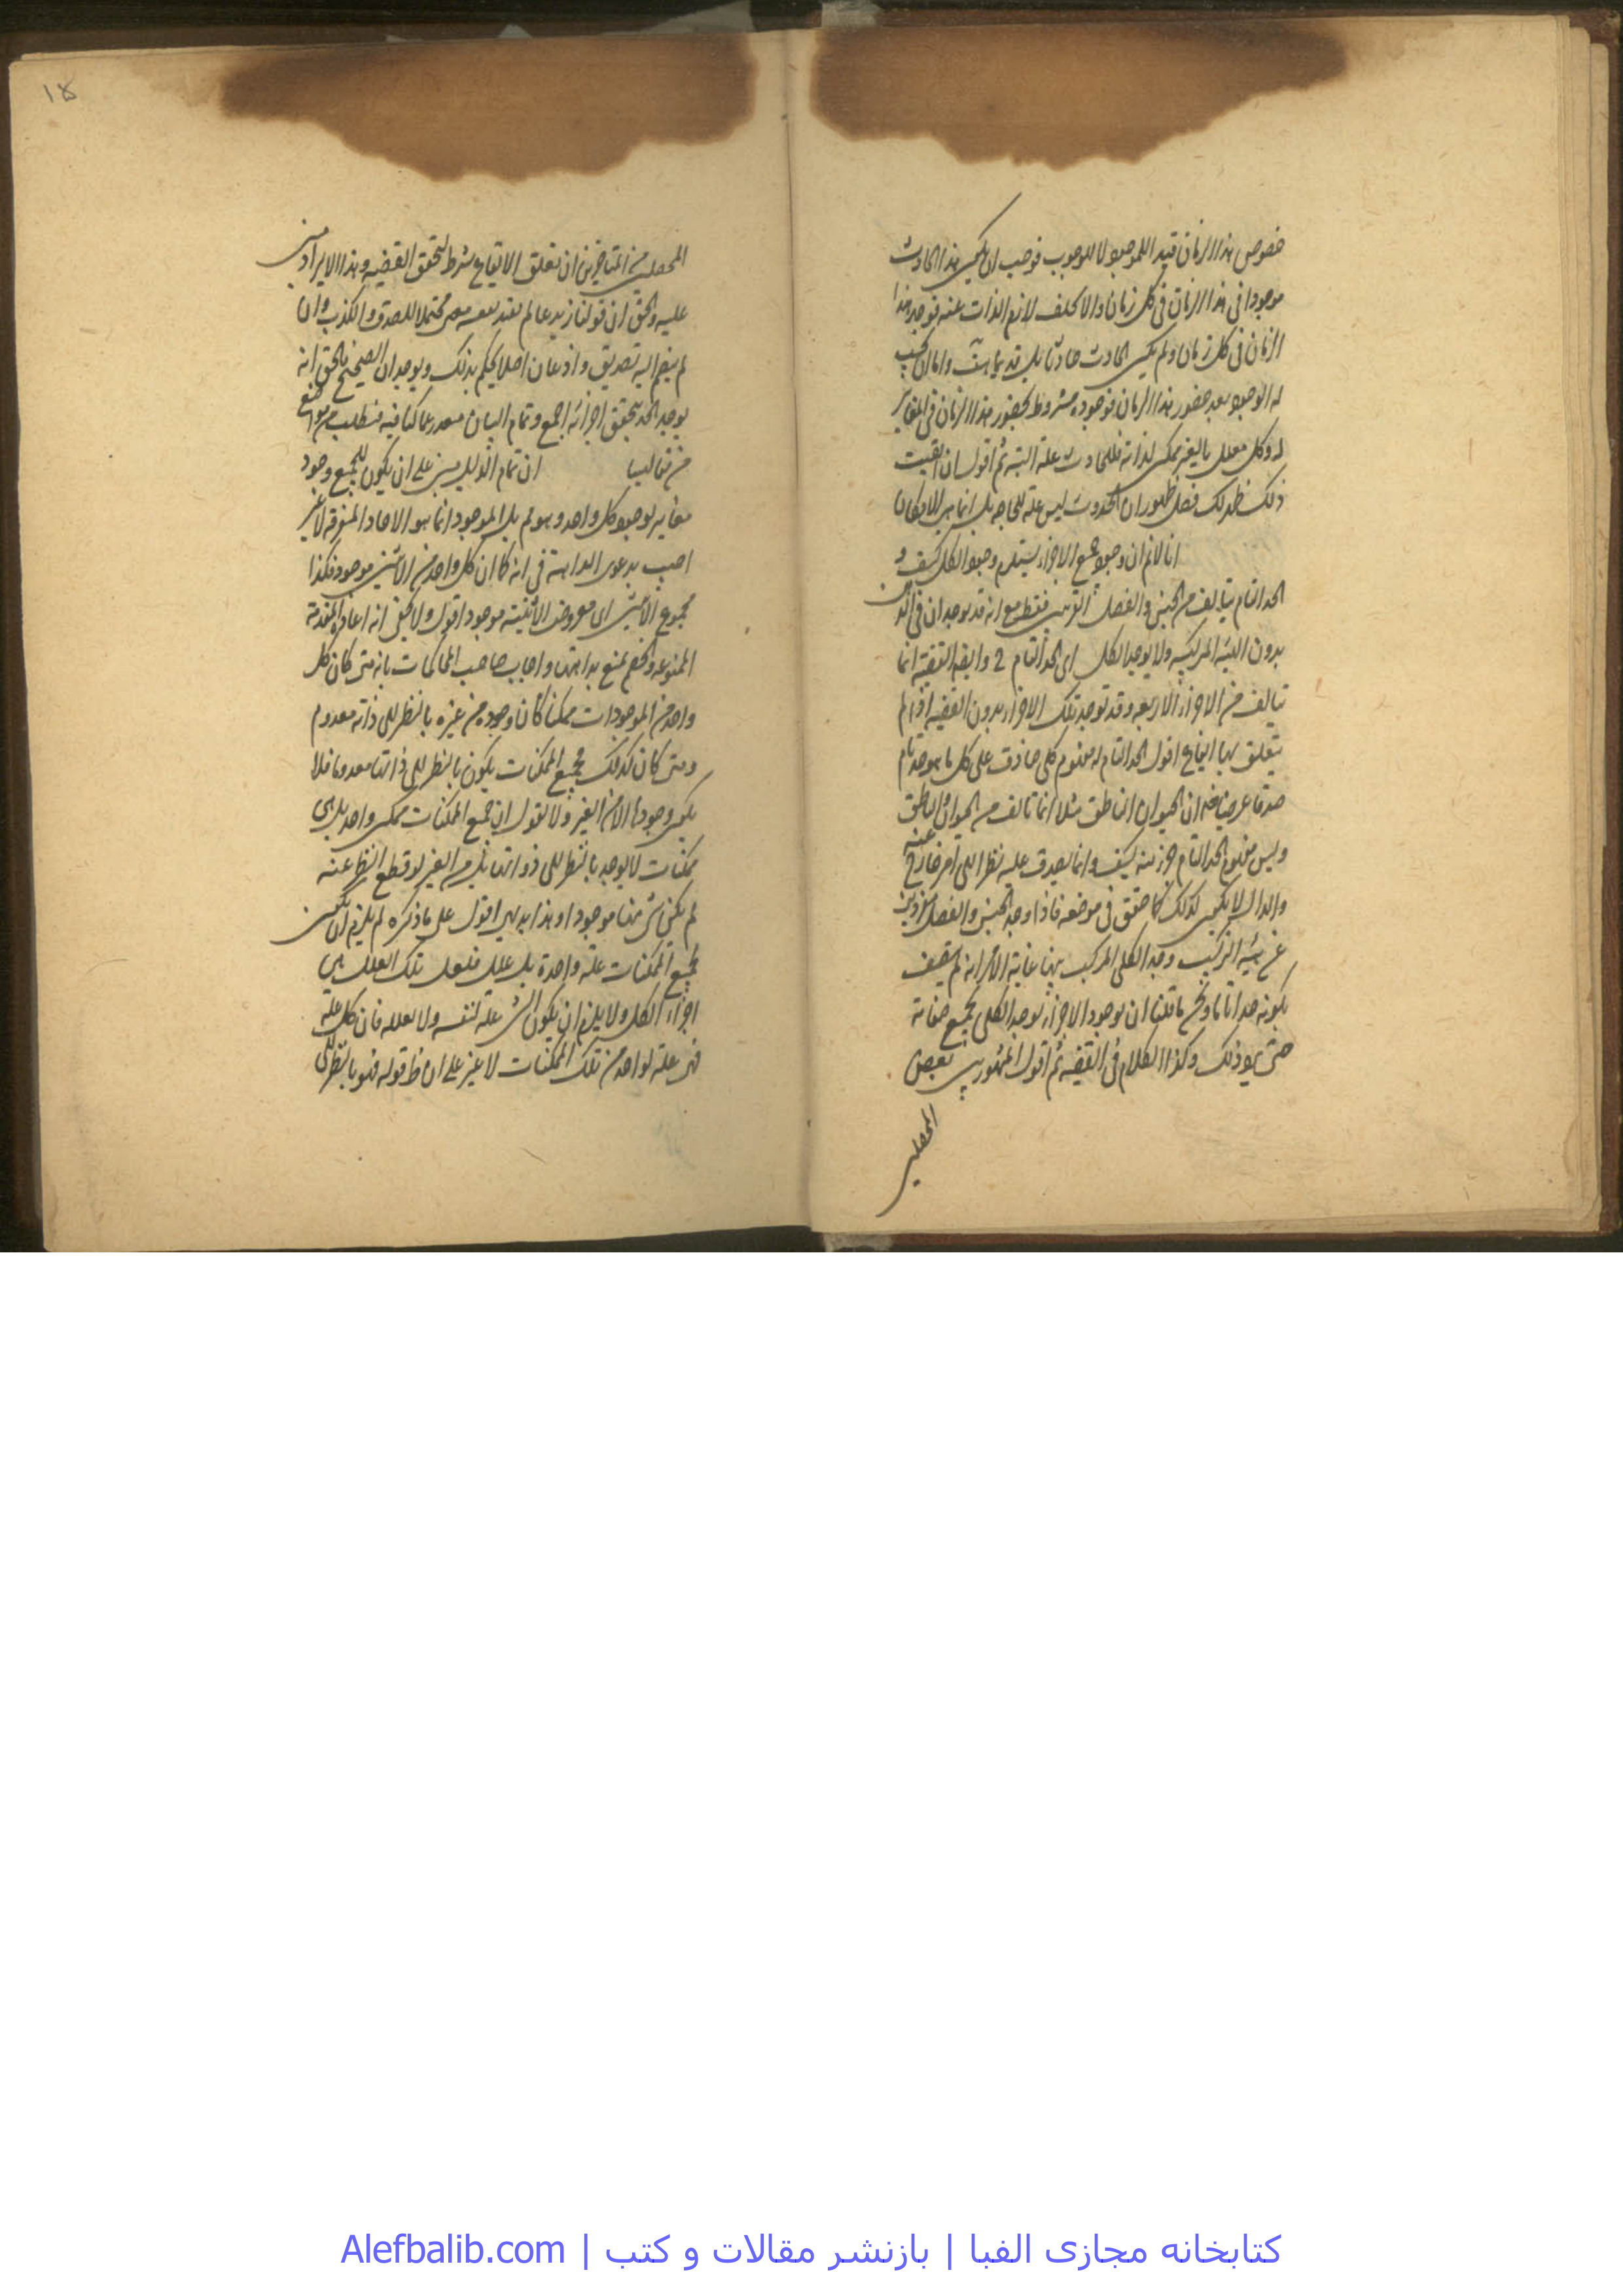 خصوص هذا الزمان قيد للموجود لا للوجوب فوجب ان يكون هذا الحادث
موجودا فى هذا الزمان فى كل زمان والا لتخلف لازم الذات عنه فوجد هذا
الزمان فى كل زمان ولم يكن الحادث حادثا بل قديما هف واما ان يجب
له الوجود بعد حضور هذا الزمان فوجوده مشروط بحضور هذا الزمان فى المغاير
له وكل معلل بالغير ممكن لذاته فللحادث علة البتة ثم اقول ان اتقيت
ذلك ظهر لك فضل ظهور ان الحدوث ليس علة للحاجة بل انما هى الامكان
انا لا نم ان وجود جميع الاجزاء يستلزم وجود الكل كيف و
الحد التام يتالف من الجنس والفصل القريبين فقط مع انه قد يوجدان فى الذهن
بدون الهيئة التركيبية ولا يوجد الكل اى الحد التام ح وايضا القضية انما
تتالف من الاجزاء الاربعة وقد توجد تلك الاجزاء بدون القضية اذا لم
يتعلق بها ايقاع اقول الحد التام له مفهوم كلى صادق على كل ما هو حد تام
صدقا عرضيا فان الحيوان الناطق مثلا انما تالف من الحيوان والناطق
وليس مفهوم الحد التام جزء منه كيف وانما يصدق عليه نظرا الى امر خارج عنه
والذاتى لا يكون كذلك كما حقق فى موضعه فاذا وجد الجنس والفصل
عن هيئة التركيب وجد الكل المركب منها غاية الامر انه لم يتصف
بكونه حدا تاما ونحن ما قلنا ان بوجود الاجزاء يوجد الكل بجميع صفاته
حتى يرد ذلك وكذا الكلام فى القضية ثم اقول المشهور بين بعض
المحصلين
١٥
المحصلين من المتاخرين ان تعلق الايقاع شرط لتحقق القضية وهذا الايراد مبنى
عليه والحق ان قولنا زيد عالم محتملا للصدق والكذب وان
لم ينضم اليه تصديق واذعان اصلا يحكم بذلك وجدان الصحيح فالحق انه
يوجد الحد بتحقق اجزائه اجمع وتمام البيان عما كنا فيه فيطلب من مواضع
من تعاليـنا ان تمام الدليل مبنى على ان يكون للجميع وجود
مغاير لوجود كل واحد وهو مم بل الموجود انما هو الاحاد المتفرقة لا غير
اجيب بدعوى البداهة فى انه كما ان كل واحد من الاثنين موجود فكذا
مجموع الاثنين اى معروض الاثنينية موجود اقول ولا يخفى انه اعادة المقدمة
الممنوعة والخصم يمنع بداهتها واجاب صاحب المحاكمات بانه متى كان كل
واحد من الموجودات ممكنا كان وجوده من غيره بالنظر الى ذاته معدوم
ومتى كان كذلك فجميع الممكنات يكون بالنظر الى ذاتها معدوما فلا
يكون وجودها الا من الغير ولا نقول ان جميع الممكنات ممكن واحد بل هى
ممكنات لا يوجد بالنظر الى ذواتها بل من الغير لو قطع النظر عنه
لم يكن شئ منها موجودا وهذا بديهى اقول على ما ذكره لم يلزم ان يكون
لجميع الممكنات علة واحدة بل علل فلعل تلك العلل هى
اجزاء الكل ولا يلزم ان يكون الشئ علة لنفسه ولا لعلله فان كل علة
فهى علة لواحد من تلك الممكنات لا غير على ان ظ قوله فهو بالنظر الى
كتابخانه مجازى الفبا | بازنشر مقالات و كتب | Alefbalib.com